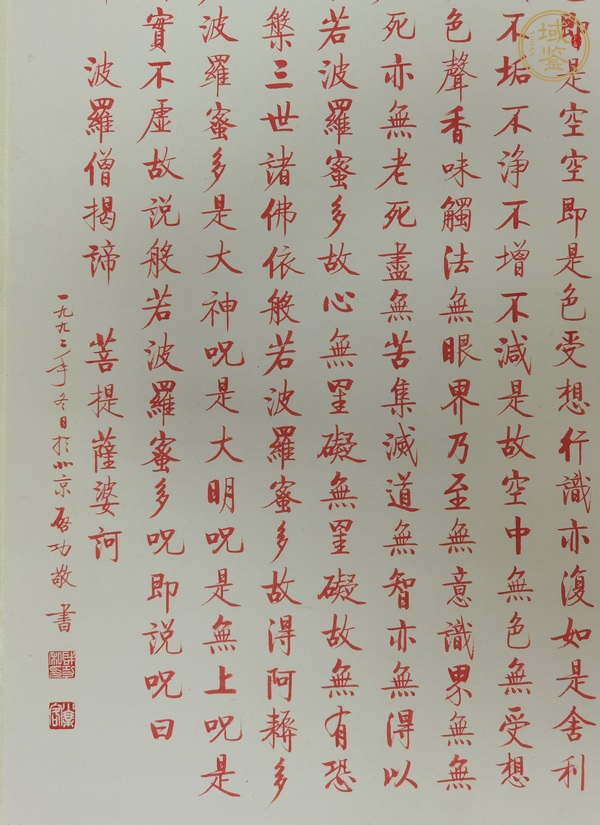 即是空空即是色受想行識亦復如是舍利
不垢不浄不增不減是故空中無色無受想
色聲香味觸法無眼界乃至無意識界無無
死亦無老死盡無苦集滅道無智亦無得以
若波羅蜜多故心無罣礙無罣礙故無有恐
槃三世諸佛依般若波羅蜜多故得阿耨多
波羅蜜多是大神呪是大明呪是無上呪是
實不虛故說般若波羅蜜多呪即說呪曰
波羅僧揭諦 菩提薩婆訶
一九九二年冬日於北京啟功敬書
域鉴